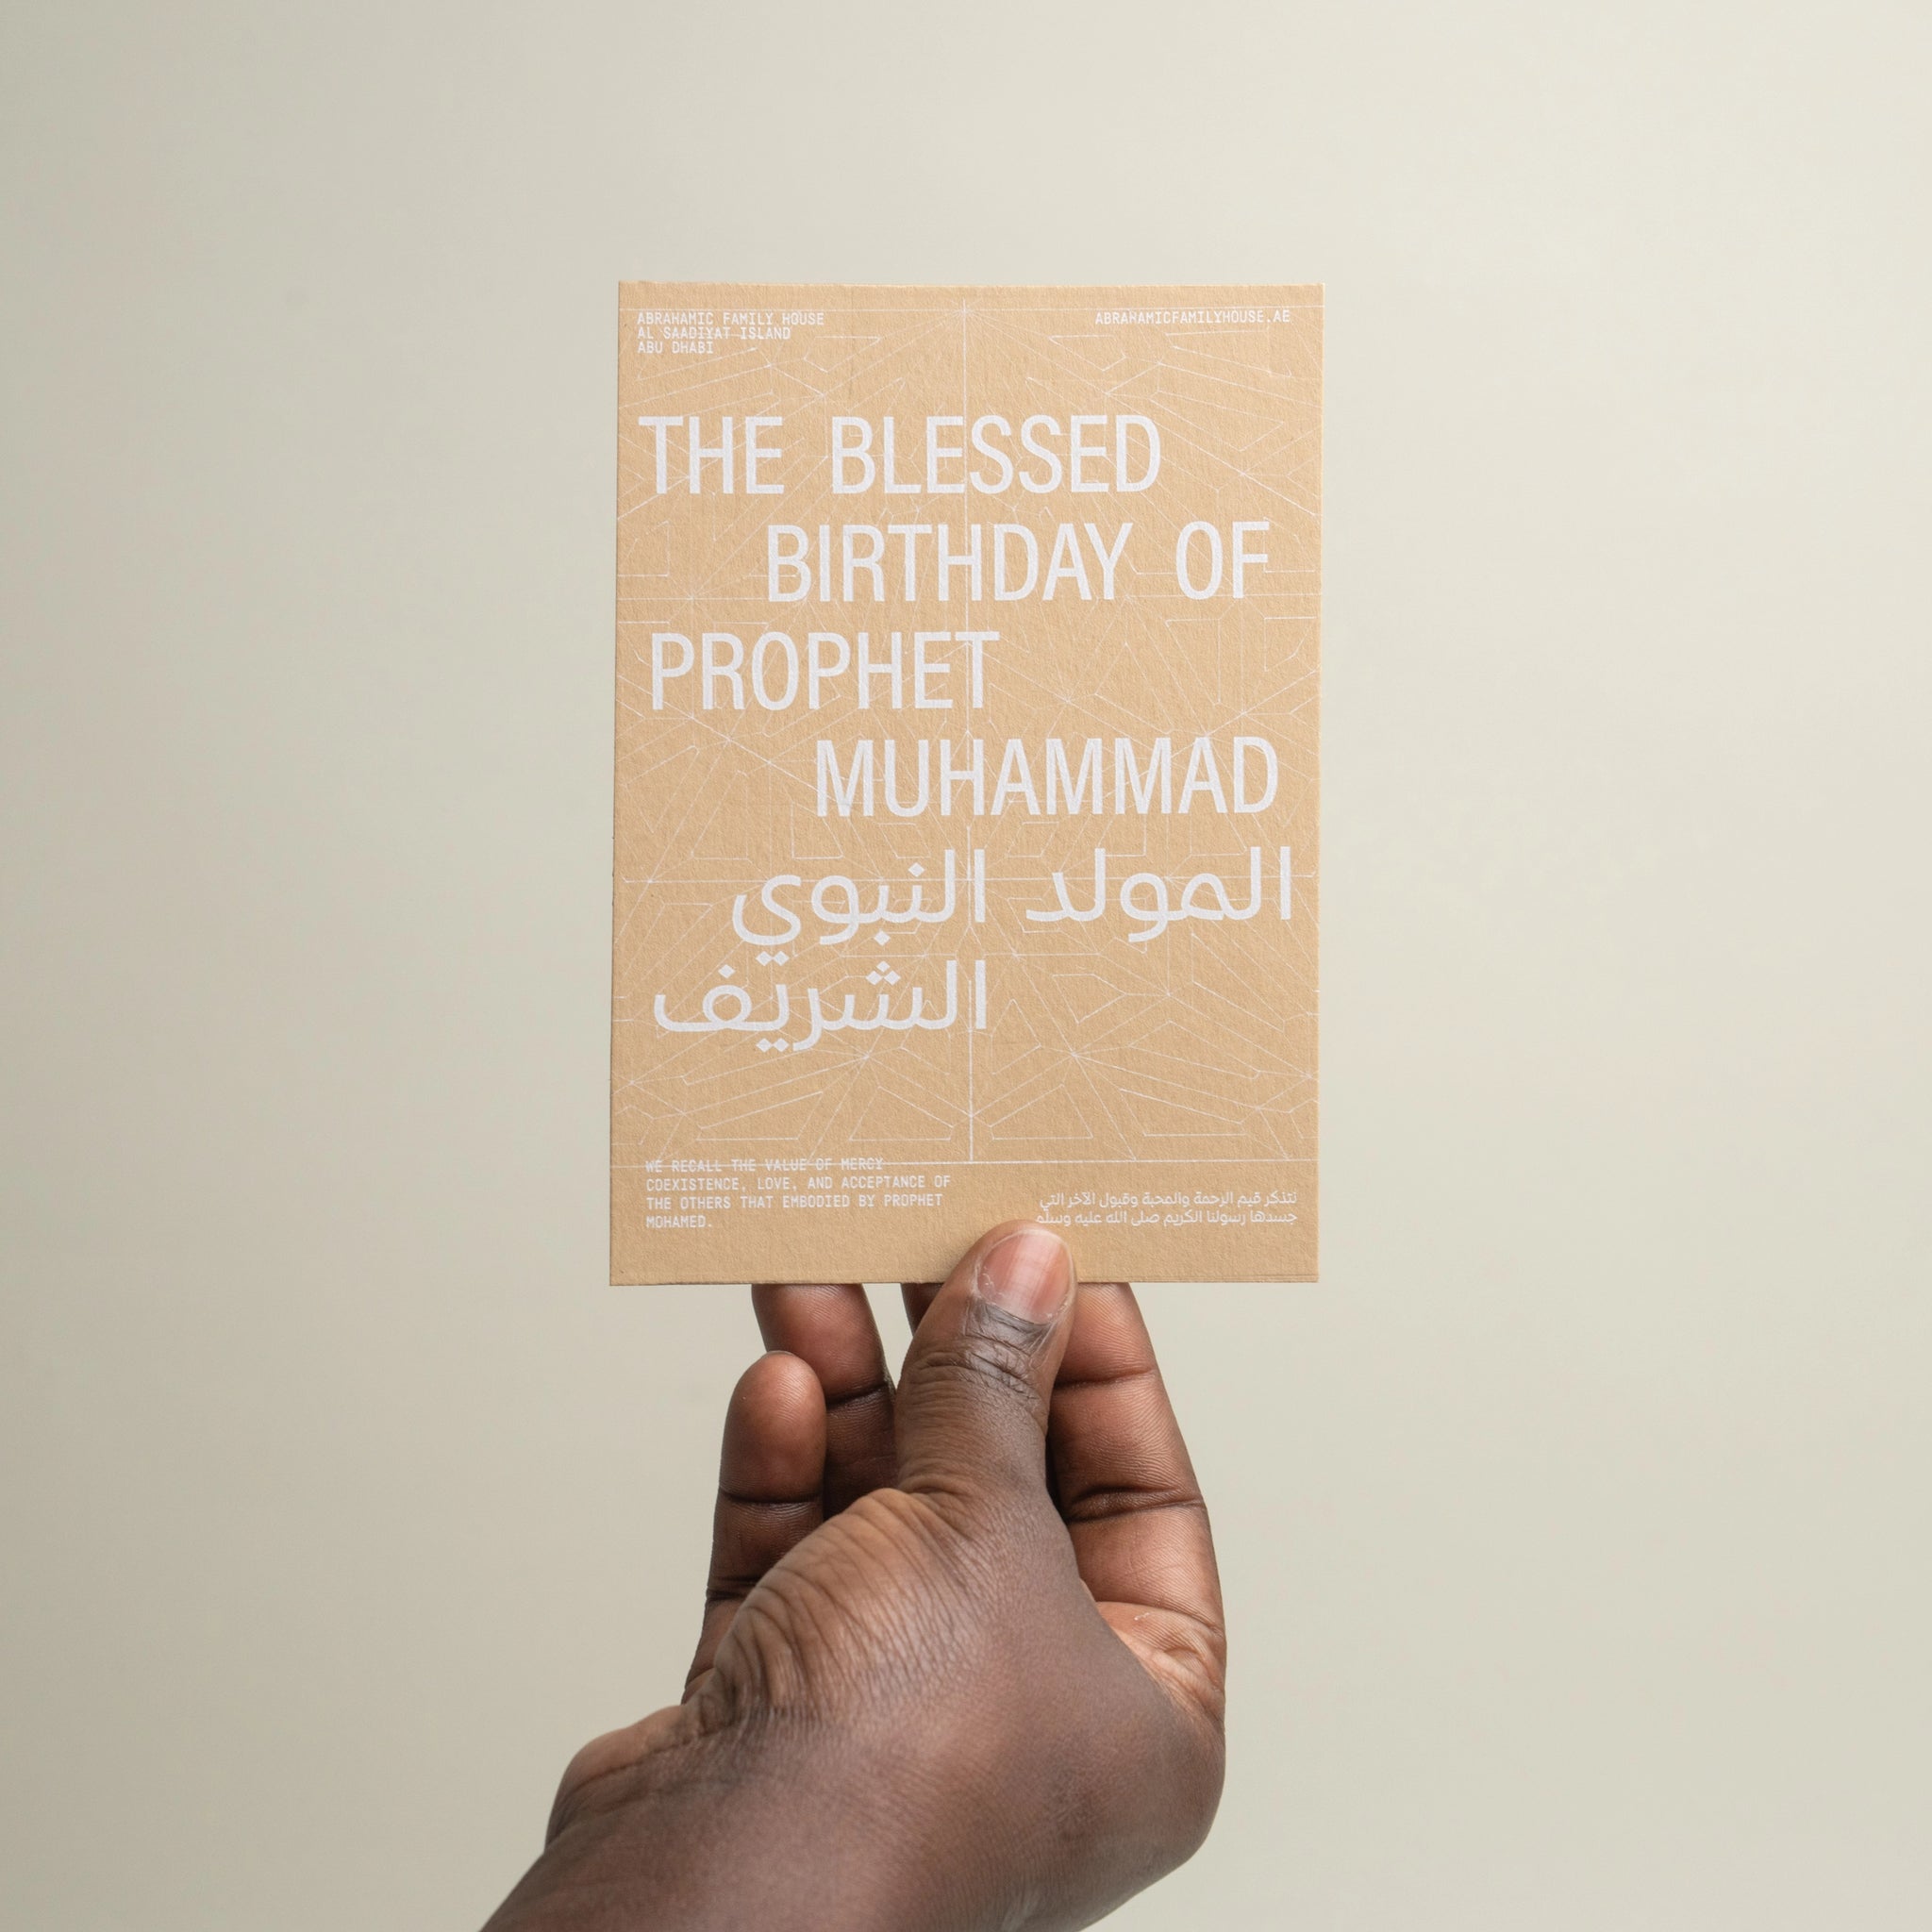 ABRAHAMIC FAMILY HOUSE
AL SAADIYAT ISLAND
ABU DHABI
ABRAHAMICFAMILYHOUSE.AE
THE BLESSED
BIRTHDAY OF
PROPHET
MUHAMMAD
المولد النبوي
الشريف
WE RECALL THE VALUE OF MERCY
COEXISTENCE, LOVE, AND ACCEPTANCE OF
THE OTHERS THAT EMBODIED BY PROPHET
MOHAMED.
نتذكر قيم الرحمة والمحبة وقبول الآخر التي
جسدها رسولنا الكريم صلى الله عليه وسلم